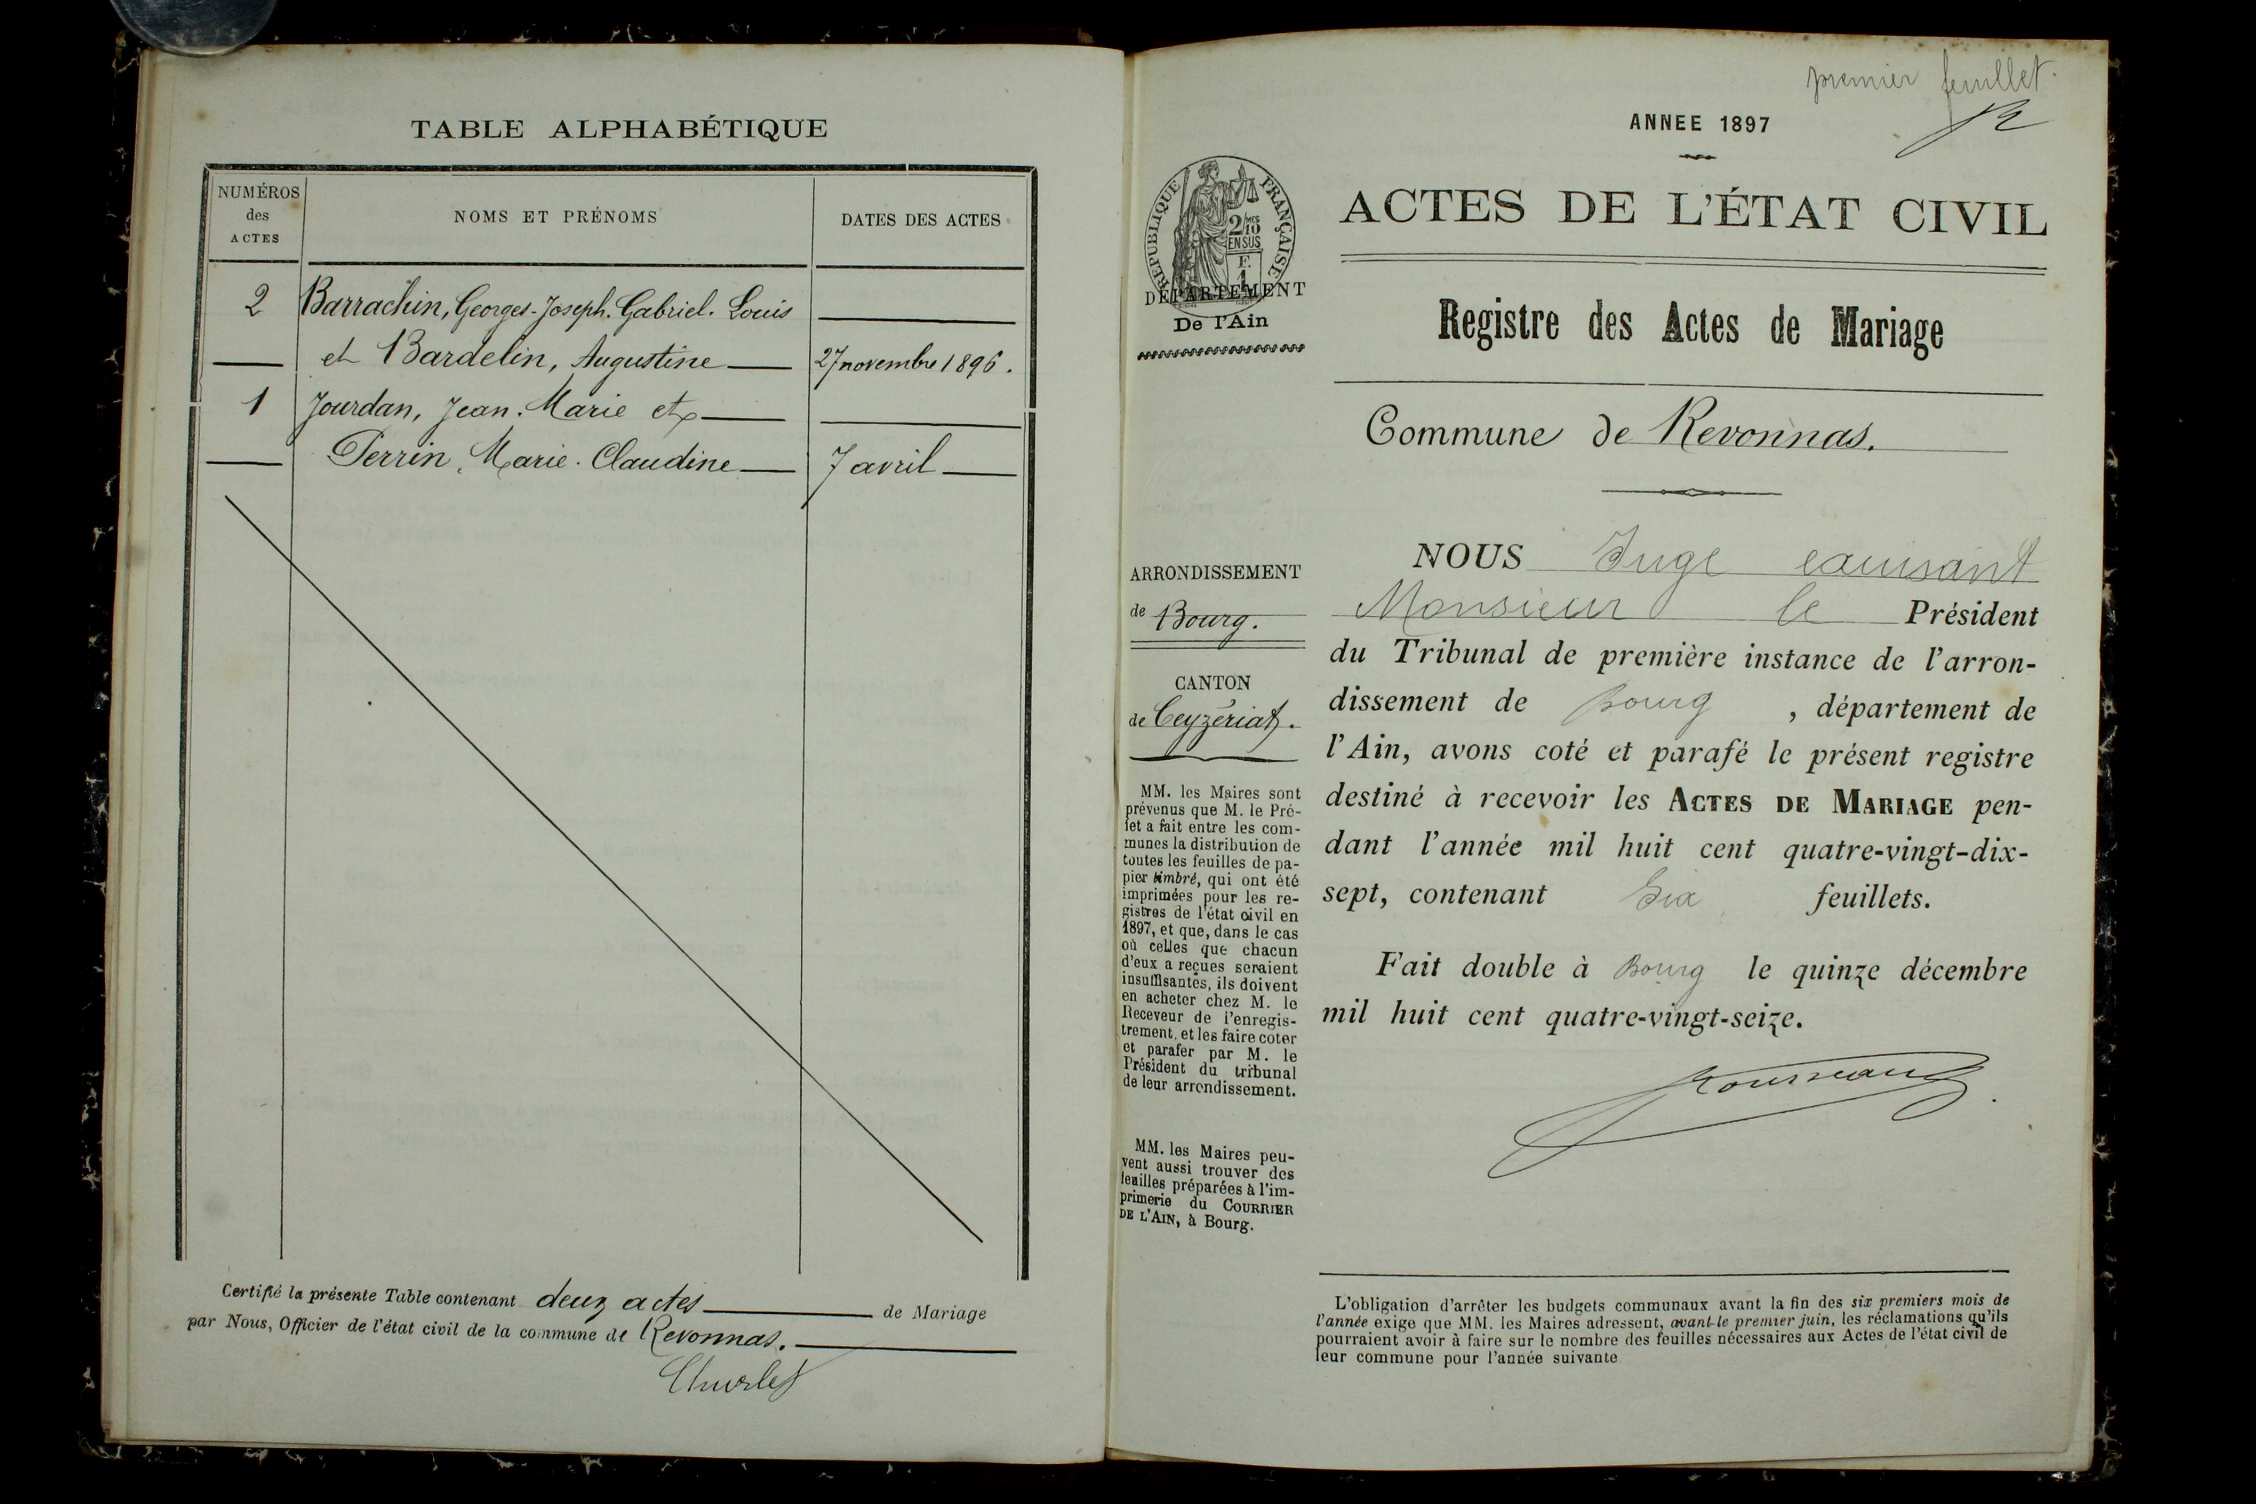 TABLE ALPHABÉTIQUE
NUMÉROS
des
ACTES
NOMS ET PRÉNOMS
DATES DES ACTES
2 Barrachin, Georges-Joseph-Gabriel-Louis
et Bardelin, Augustine 27 novembre 1896.
1 Jourdan, Jean-Marie et
Perrin, Marie-Claudine 7 avril
Certifié la présente Table contenant deux actes de Mariage
par Nous, Officier de l'état civil de la commune de Revonnas.
premier feuillet.
ANNEE 1897
REPUBLIQUE FRANÇAISE
2/10
EN SUS
DÉPARTEMENT
De l'Ain
ACTES DE L'ÉTAT CIVIL
Registre des Actes de Mariage
Commune de Revonnas.
ARRONDISSEMENT
de Bourg.
CANTON
de Ceyzériat.
MM. les Maires sont
prévenus que M. le Pré-
fet a fait entre les com-
munes la distribution de
toutes les feuilles de pa-
pier timbré, qui ont été
imprimées pour les re-
gistres de l'état civil en
1897, et que, dans le cas
où celles que chacun
d'eux a reçues seraient
insuffisantes, ils doivent
en acheter chez M. le
Receveur de l'enregis-
trement, et les faire coter
et parafer par M. le
Président du tribunal
de leur arrondissement.
MM. les Maires peu-
vent aussi trouver des
feuilles préparées à l'im-
primerie du COURRIER
DE L'AIN, à Bourg.
NOUS Juge
Monsieur le Président
du Tribunal de première instance de l'arron-
dissement de Bourg, département de
l'Ain, avons coté et parafé le présent registre
destiné à recevoir les ACTES DE MARIAGE pen-
dant l'année mil huit cent quatre-vingt-dix-
sept, contenant Six feuillets.
Fait double à Bourg le quinze décembre
mil huit cent quatre-vingt-seize.
L'obligation d'arrêter les budgets communaux avant la fin des six premiers mois de
l'année exige que MM. les Maires adressent, avant le premier juin, les réclamations qu'ils
pourraient avoir à faire sur le nombre des feuilles nécessaires aux Actes de l'état civil de
leur commune pour l'année suivante